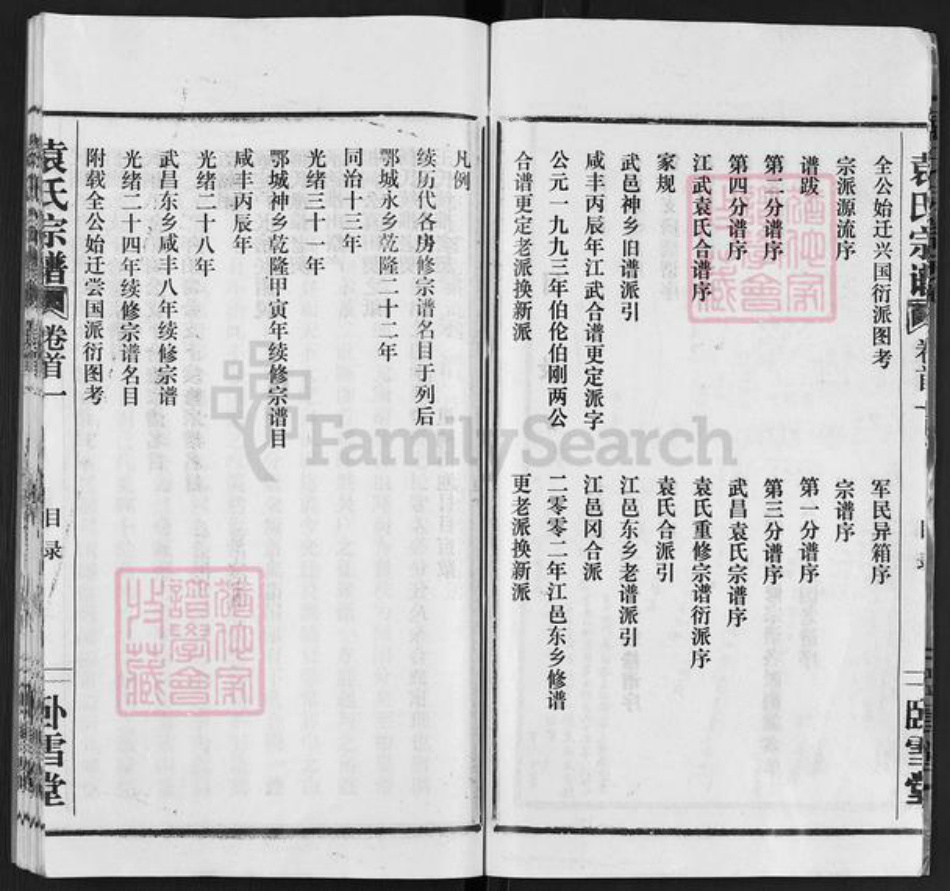 全公始迁兴国衍派图考
军民异箱序
宗派源流序
宗谱序
谱跋
第一分谱序
第二分谱序
第三分谱序
第四分谱序
武昌袁氏宗谱序
江武袁氏合谱序
袁氏重修宗谱衍派序
家规
袁氏合派引
武邑神乡旧谱派引
江邑东乡老谱派引
咸丰丙辰年江武合谱更定派字
江邑冈合派
公元一九九三年伯伦伯刚两公
二零零二年江邑东乡修谱
合谱更定老派换新派
更老派换新派
袁氏宗谱
卷首一
目录
卧雪堂
凡例
续历代各房修宗谱名目于列后
鄂城永乡乾隆二十二年
同治十三年
光绪三十一年
鄂城神乡乾隆甲寅年续修宗谱目
咸丰丙辰年
光绪二十八年
武昌东乡咸丰八年续修宗谱
光绪二十四年续修宗谱名目
附载全公始迁尝国派衍图考
袁氏宗谱
卷首一
目录
卧雪堂
FamilySearch